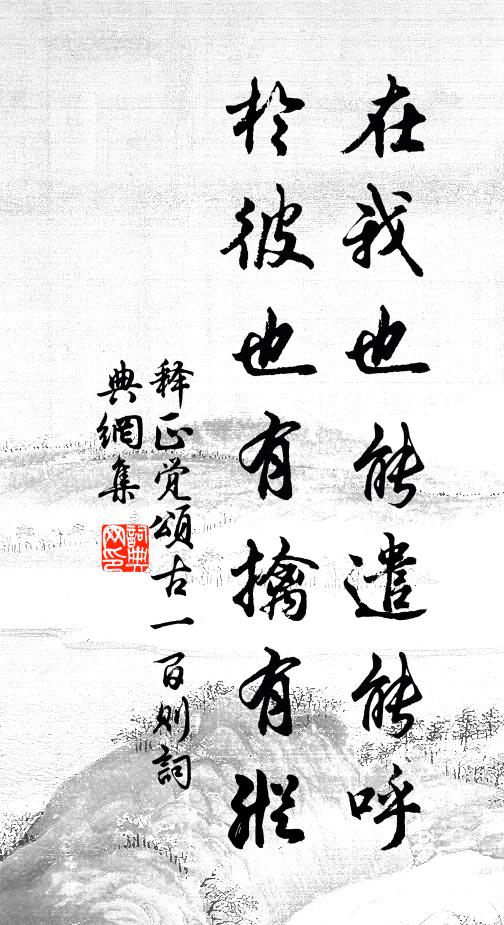 在我也能遣能呼
於彼也有擒有縱
释正觉頌古一百则詞
典網集
詞典網印